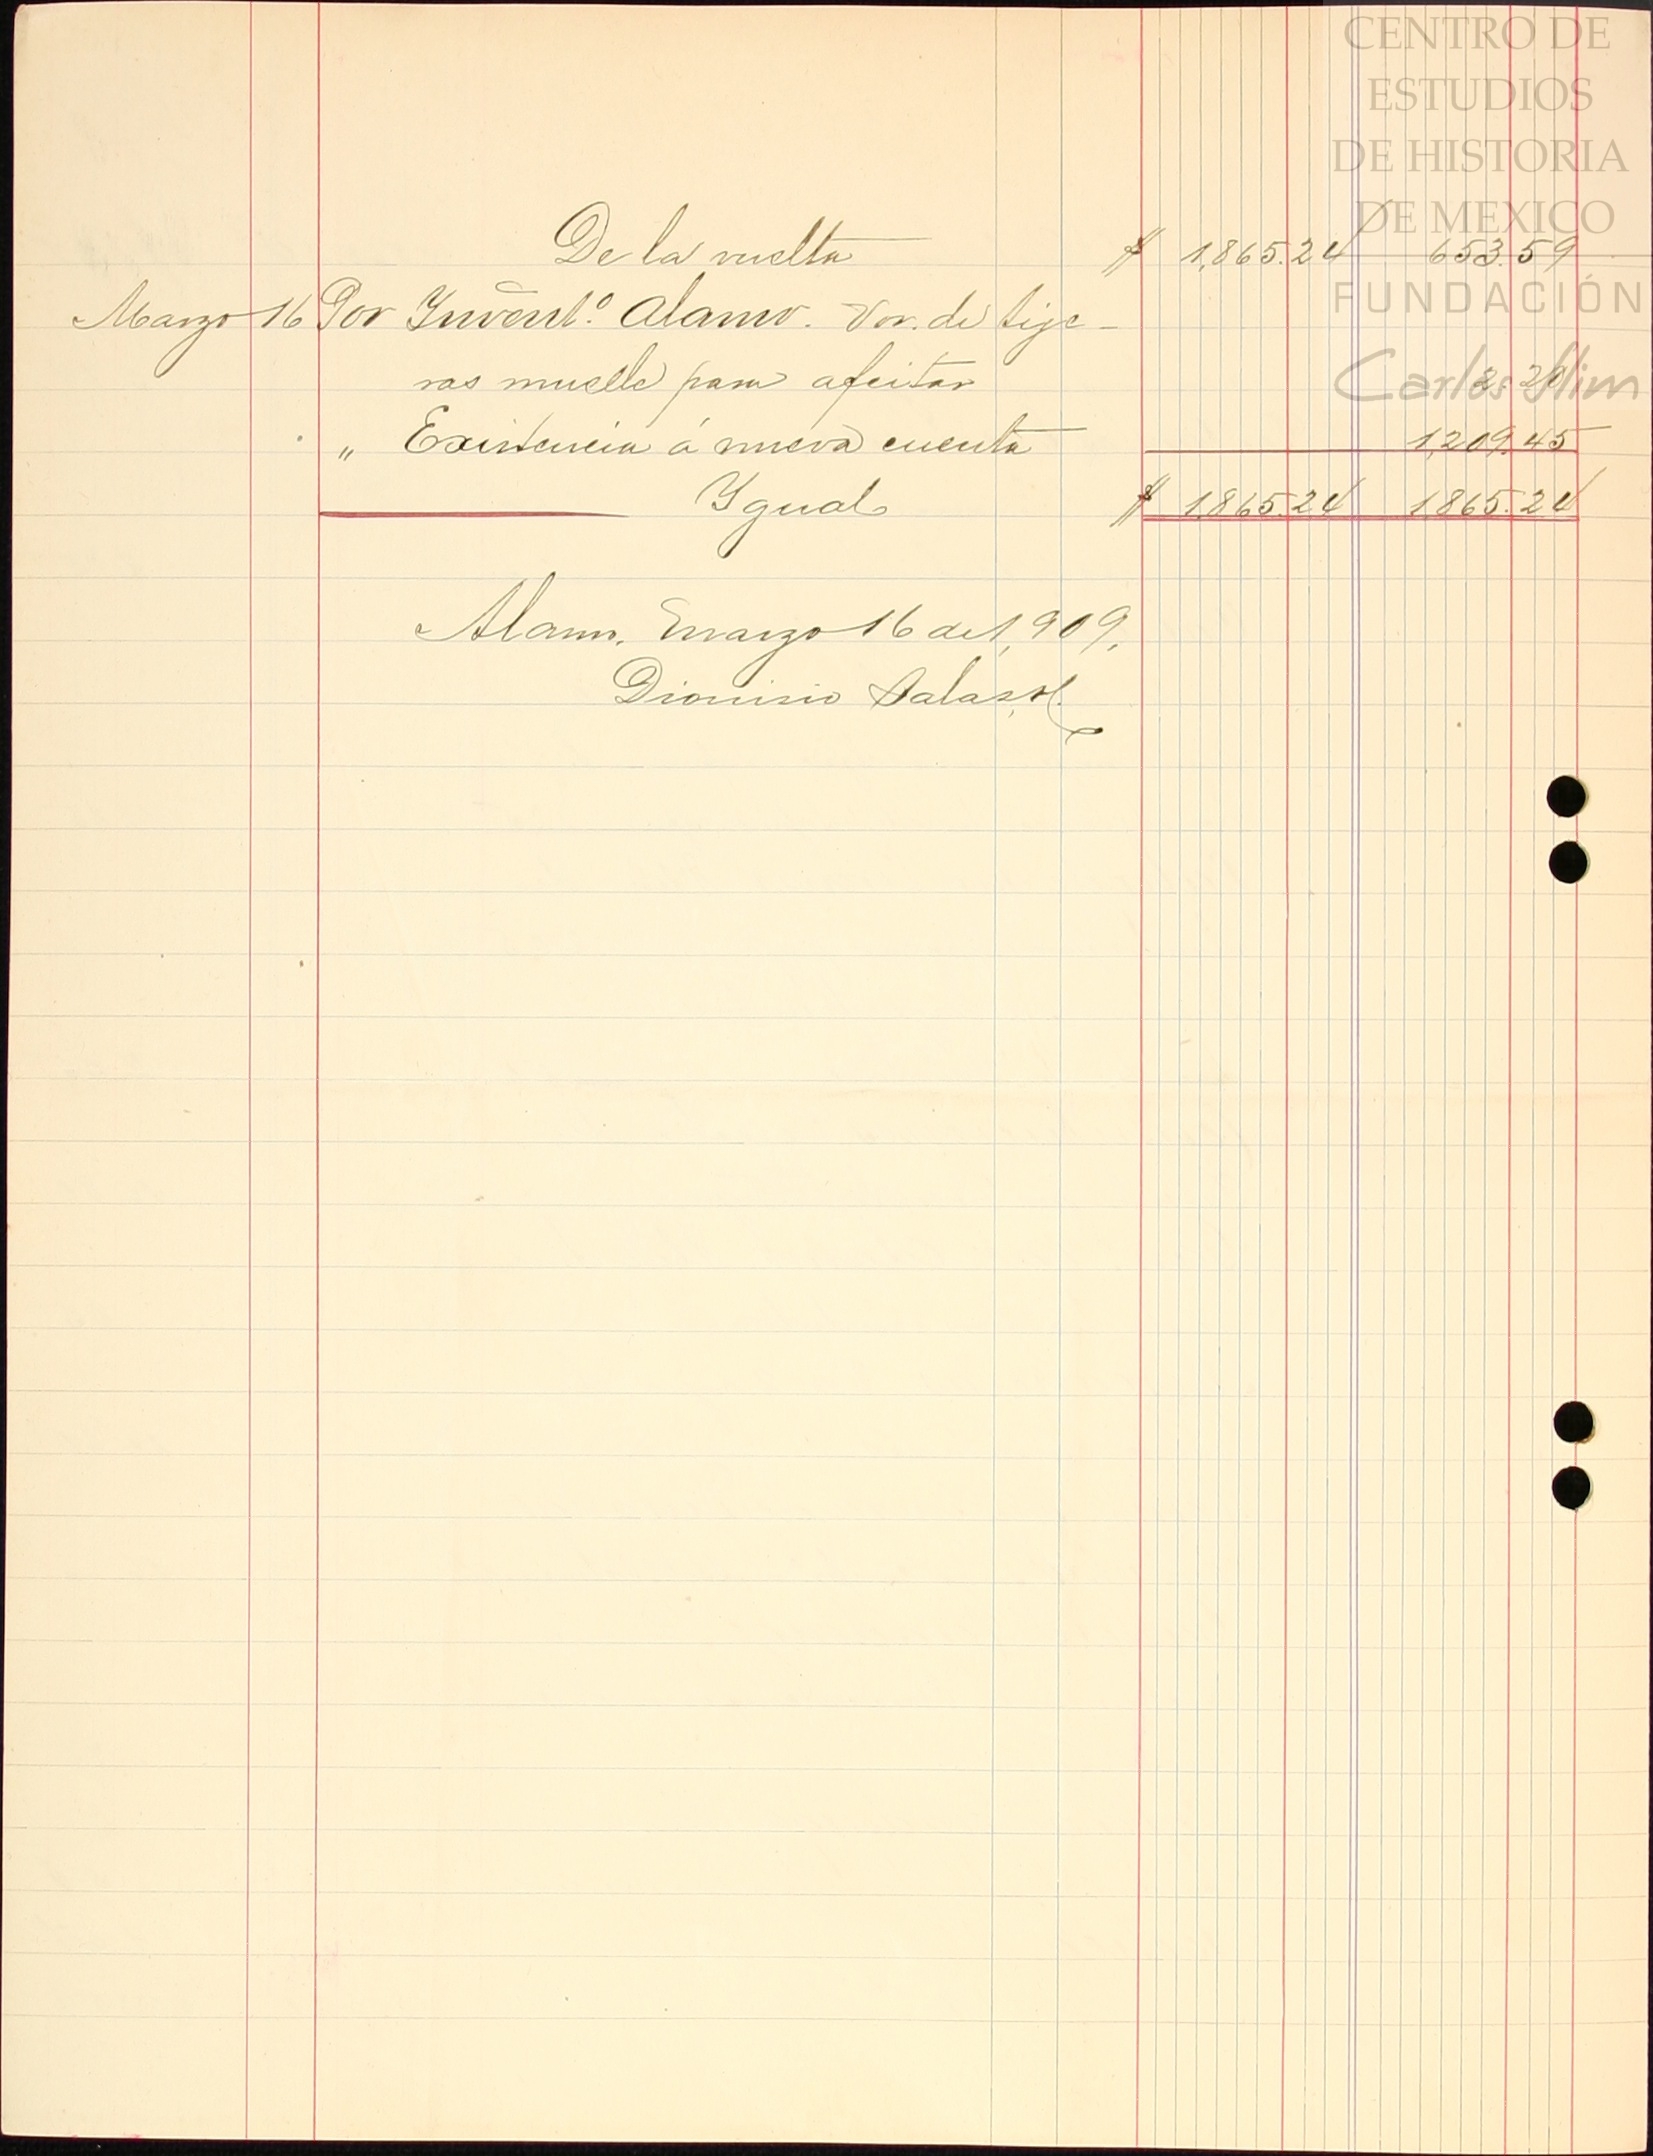 CENTRO DE
ESTUDIOS
DE HISTORIA
DE MEXICO
FUNDACIÓN
Carlos Slim
De la vuelta $ 1,865.24 653.59
Marzo 16 Por Invent.º Alamo. Vor. de tije-
ras muelle para afeitar 2.20
" Existencia á nueva cuenta 1,209.45
Ygual $ 1,865.24 1,865.24
Alamo, Marzo 16 de 1,909.
Dionisio Salas